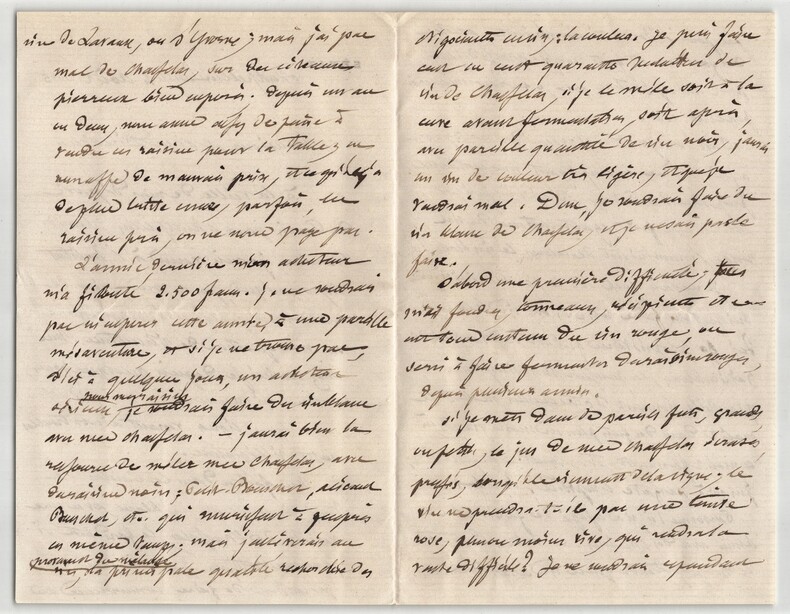 vin de Lavaux, ou d'Yvorne; mais j'ai pas
mal de Chasselas, sur des côteaux
pierreux bien exposés. Depuis un an
ou deux, nous avons assez de peine à
vendre ces raisins pour la table; on
de mauvais prix, et ce qui
de plus triste encore, parfois, les
raisins pris, on ne nous paye pas.
L'année dernière mon acheteur
m'a filouté 2.500 francs. Je ne voudrais
pas m'exposer cette année, à une pareille
mésaventure, et si je ne trouve pas,
d'ici à quelques jours, un acheteur
sérieux pour mes raisins, je voudrais faire du vin blanc
avec mes chasselas. – j'aurai bien la
ressource de mêler mes Chasselas, avec
du raisin noir; Petit-Bouschet, Alicant
Bouschet, etc. qui mûrissent à peu près
en même temps; mais j'enlèverais au
vin, provenant du mélange sa principale qualité recherchée des
négociants: la couleur. Je puis faire
cent ou cent quarante hectolitres de
vin de Chasselas, si je le mêle soit à la
cuve avant fermentation, soit après,
avec pareille quantité de vin noir, j'aurais
un vin de couleur très légère, et que je
vendrais mal. Donc, je voudrais faire du
vin blanc de Chasselas, et je ne sais pas le
faire.
D'abord une première difficulté;
mes foudres, tonneaux, récipients
ont tous contenu du vin rouge, ou
servi à faire fermenter du raisin rouge,
depuis plusieurs années.
Si je mets dans de pareils futs, grands
ou petits, le jus de mes chasselas écrasés,
pressés, lorsqu'ils viennent de la vigne; le
vin ne prendra-t-il pas une teinte
rose, plus ou moins vive, qui rendra la
vente difficile? Je ne voudrais cependant